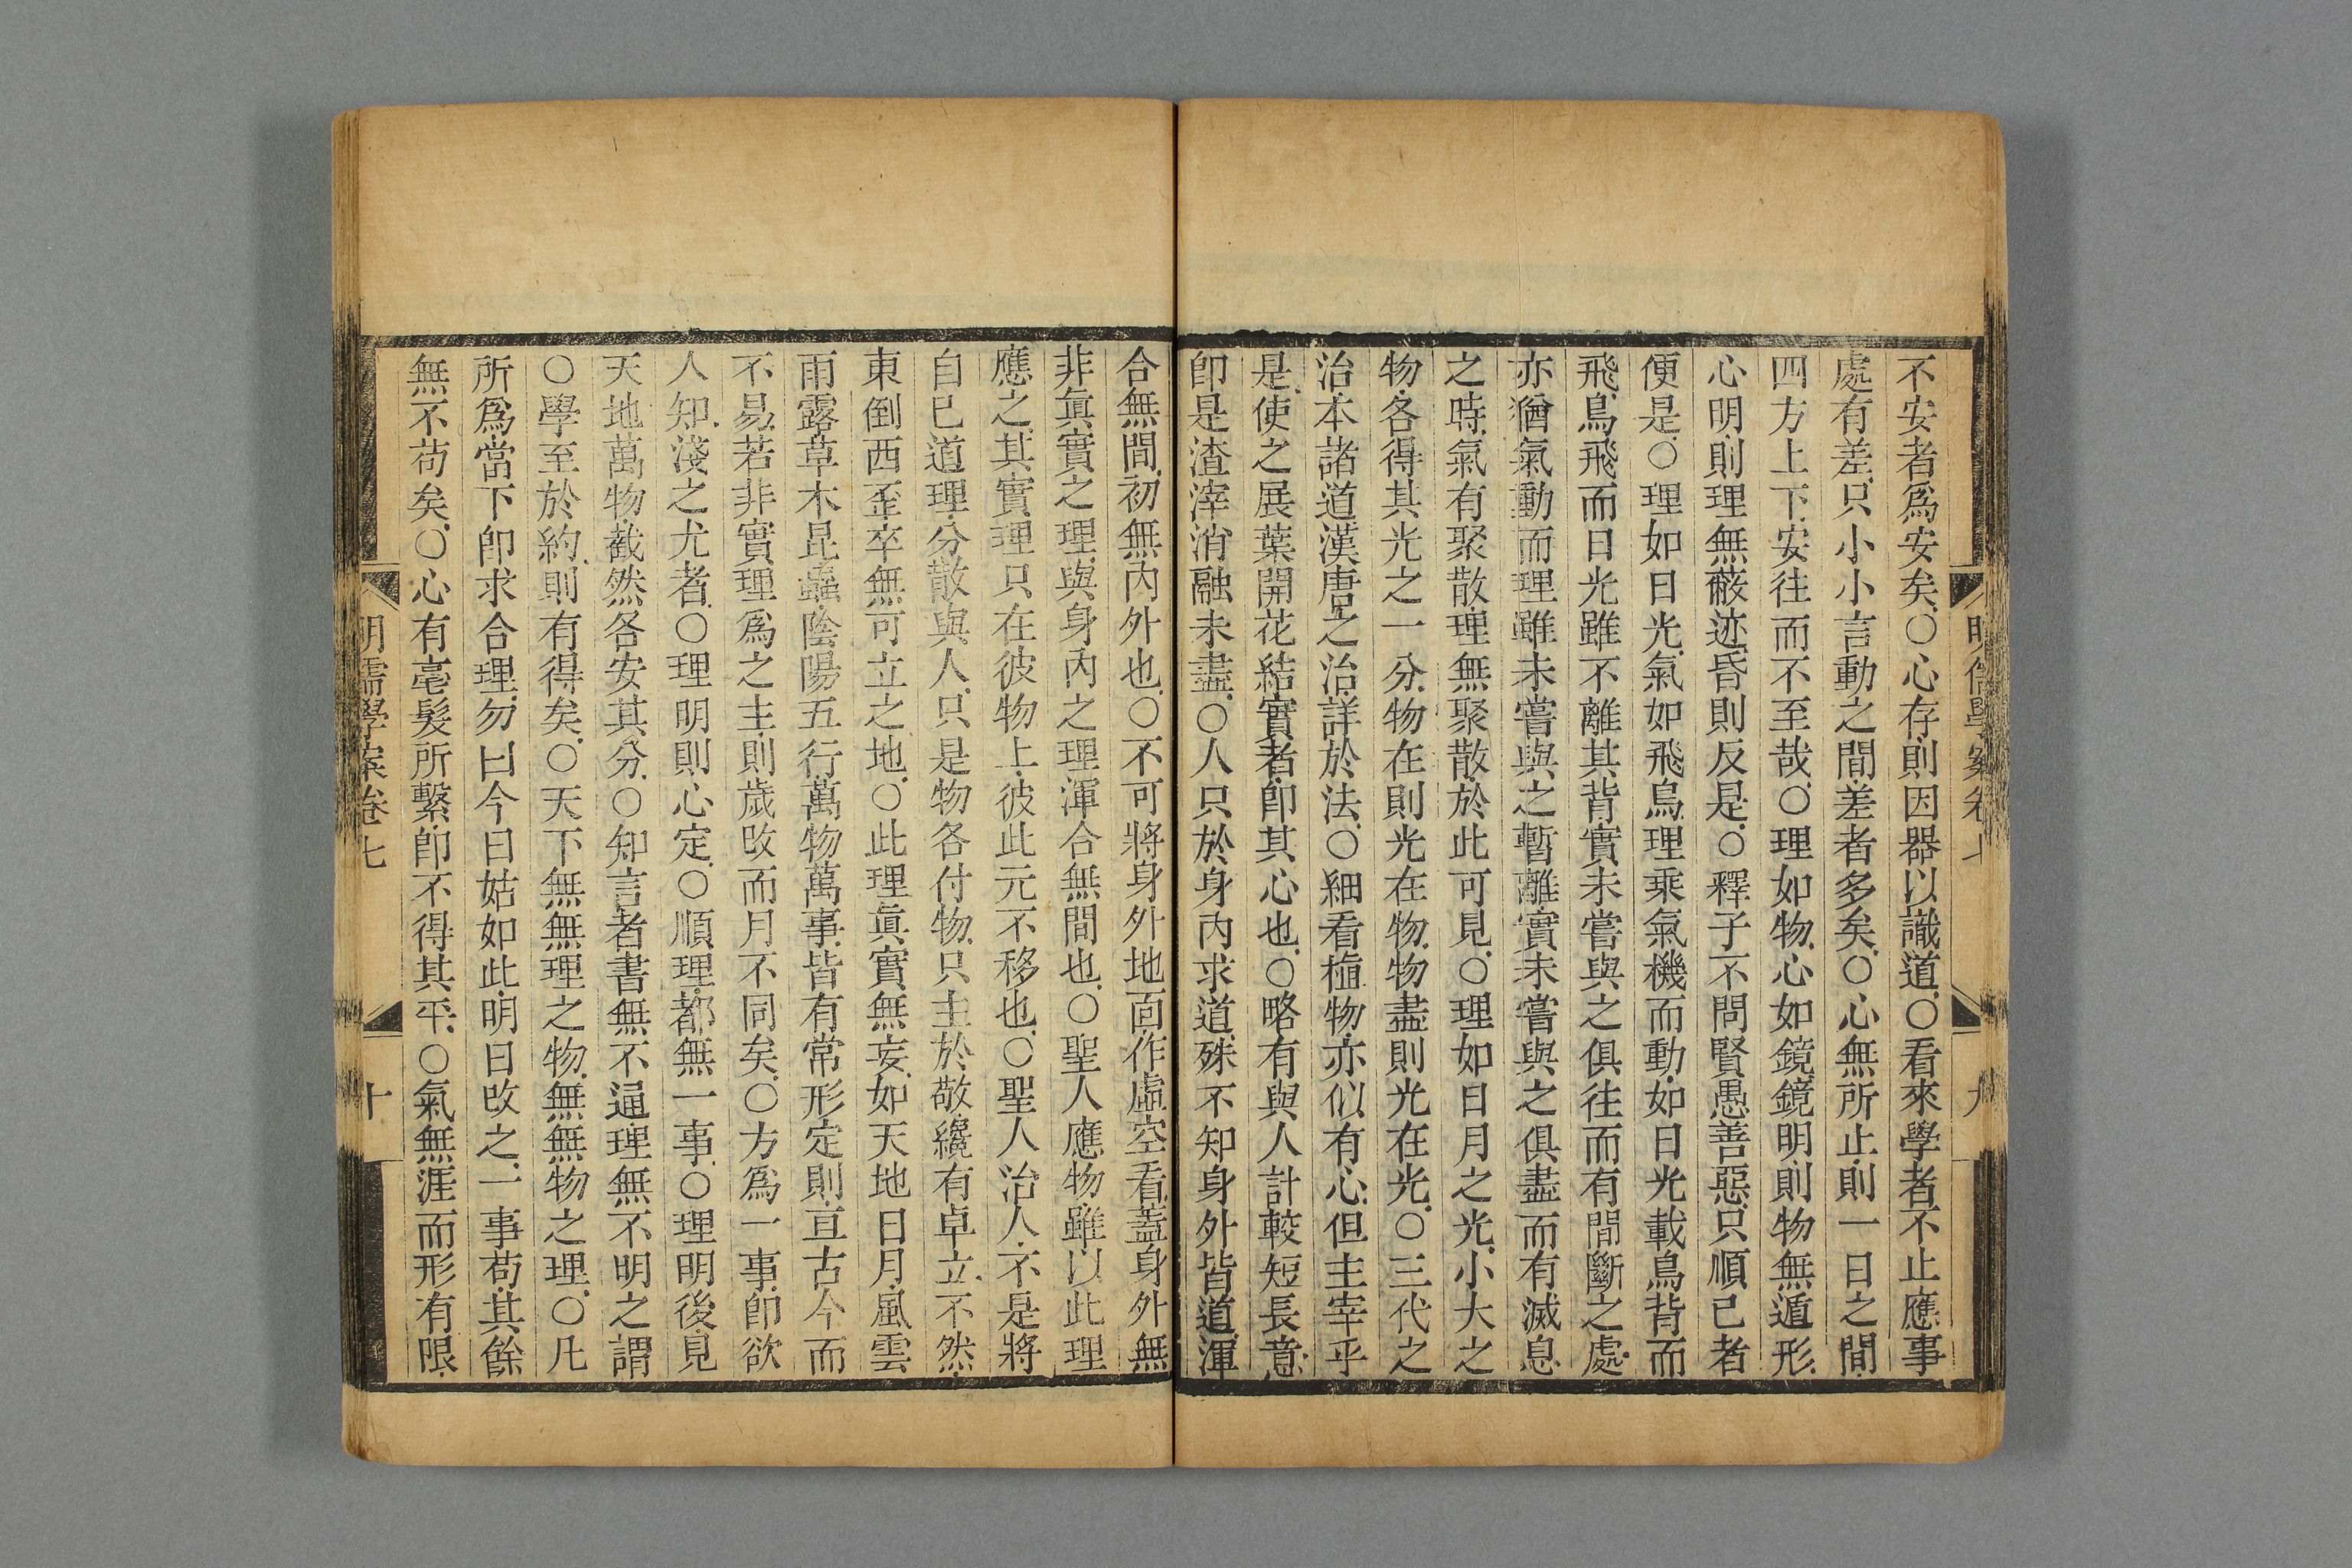 明儒學案卷七
九
不安者爲安矣○心存則因器以識道○看來學者不止應事
處有差只小小言動之間差者多矣○心無所止則一日之間
四方上下安往而不至哉○理如物心如鏡鏡明則物無遁形
心明則理無蔽迹昏則反是○釋子不問賢愚善惡只順己者
便是○理如日光氣如飛鳥理乘氣機而動如日光載鳥背而
飛鳥飛而日光雖不離其背實未嘗與之俱往而有間斷之處
亦猶氣動而理雖未嘗與之暫離實未嘗與之俱盡而有滅息
之時氣有聚散理無聚散於此可見○理如日月之光小大之
物各得其光之一分物在則光在物物盡則光在光○三代之
治本諸道漢唐之治詳於法○細看植物亦似有心但主宰乎
是使之展葉開花結實者卽其心也○略有與人計較短長意
卽是渣滓消融未盡○人只於身內求道殊不知身外皆道渾
合無間初無內外也○不可將身外地面作虛空看蓋身外無
非眞實之理與身內之理渾合無間也○聖人應物雖以此理
應之其實理只在彼物上彼此元不移也○聖人治人不是將
自己道理分散與人只是物各付物只主於敬纔有卓立不然
東倒西歪卒無可立之地○此理眞實無妄如天地日月風雲
雨露草木昆蟲陰陽五行萬物萬事皆有常形定則亘古今而
不易若非實理爲之主則歲改而月不同矣○方爲一事卽欲
人知淺之尤者○理明則心定○順理都無一事○理明後見
天地萬物截然各安其分○知言者書無不通理無不明之謂
○學至於約則有得矣○天下無無理之物無無物之理○凡
所爲當下卽求合理勿曰今日姑如此明日改之一事苟其餘
無不苟矣○心有毫髮所繫卽不得其平○氣無涯而形有限
明儒學案卷七
十